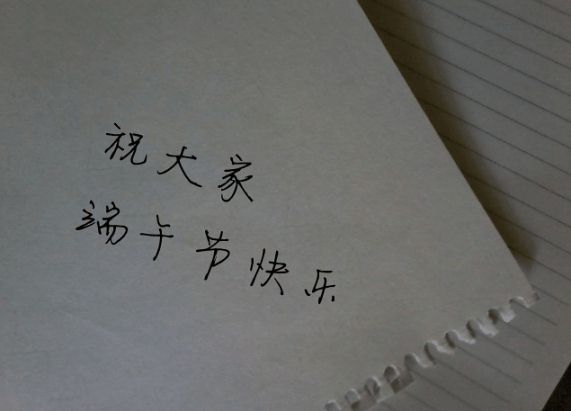 祝大家
端午节快乐